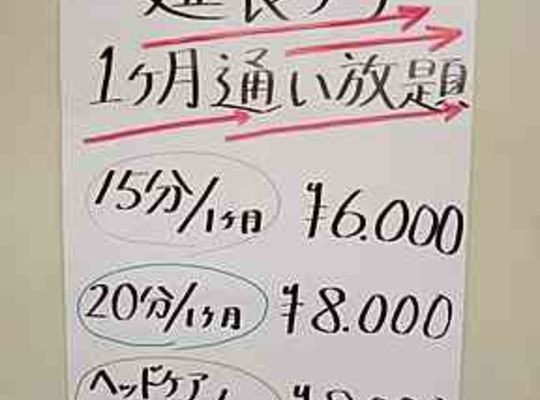 1ヶ月通い放題
15分/1ヶ月 ¥6.000
20分/1ヶ月 ¥8.000
ヘッドケア